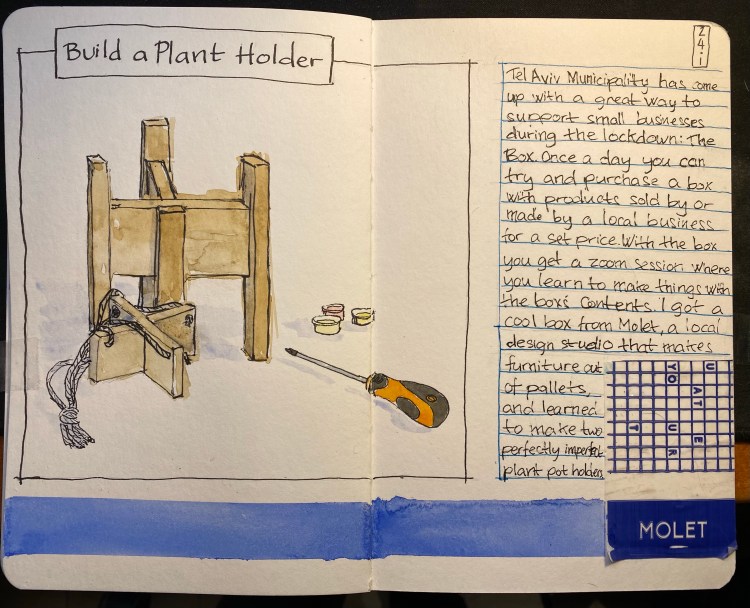 Build a Plant Holder
24.1
Tel Aviv Municipality has come
up with a great way to
support small businesses
during the lockdown: The
Box. Once a day you can
try and purchase a box
with products sold by or
made by a local business
for a set price. With the box
you get a zoom session where
you learn to make things with
the box's contents. I got a
cool box from Molet, a local
design studio that makes
furniture out
of pallets,
and learned
to make two
perfectly imperfect
plant pot holders
MOLET